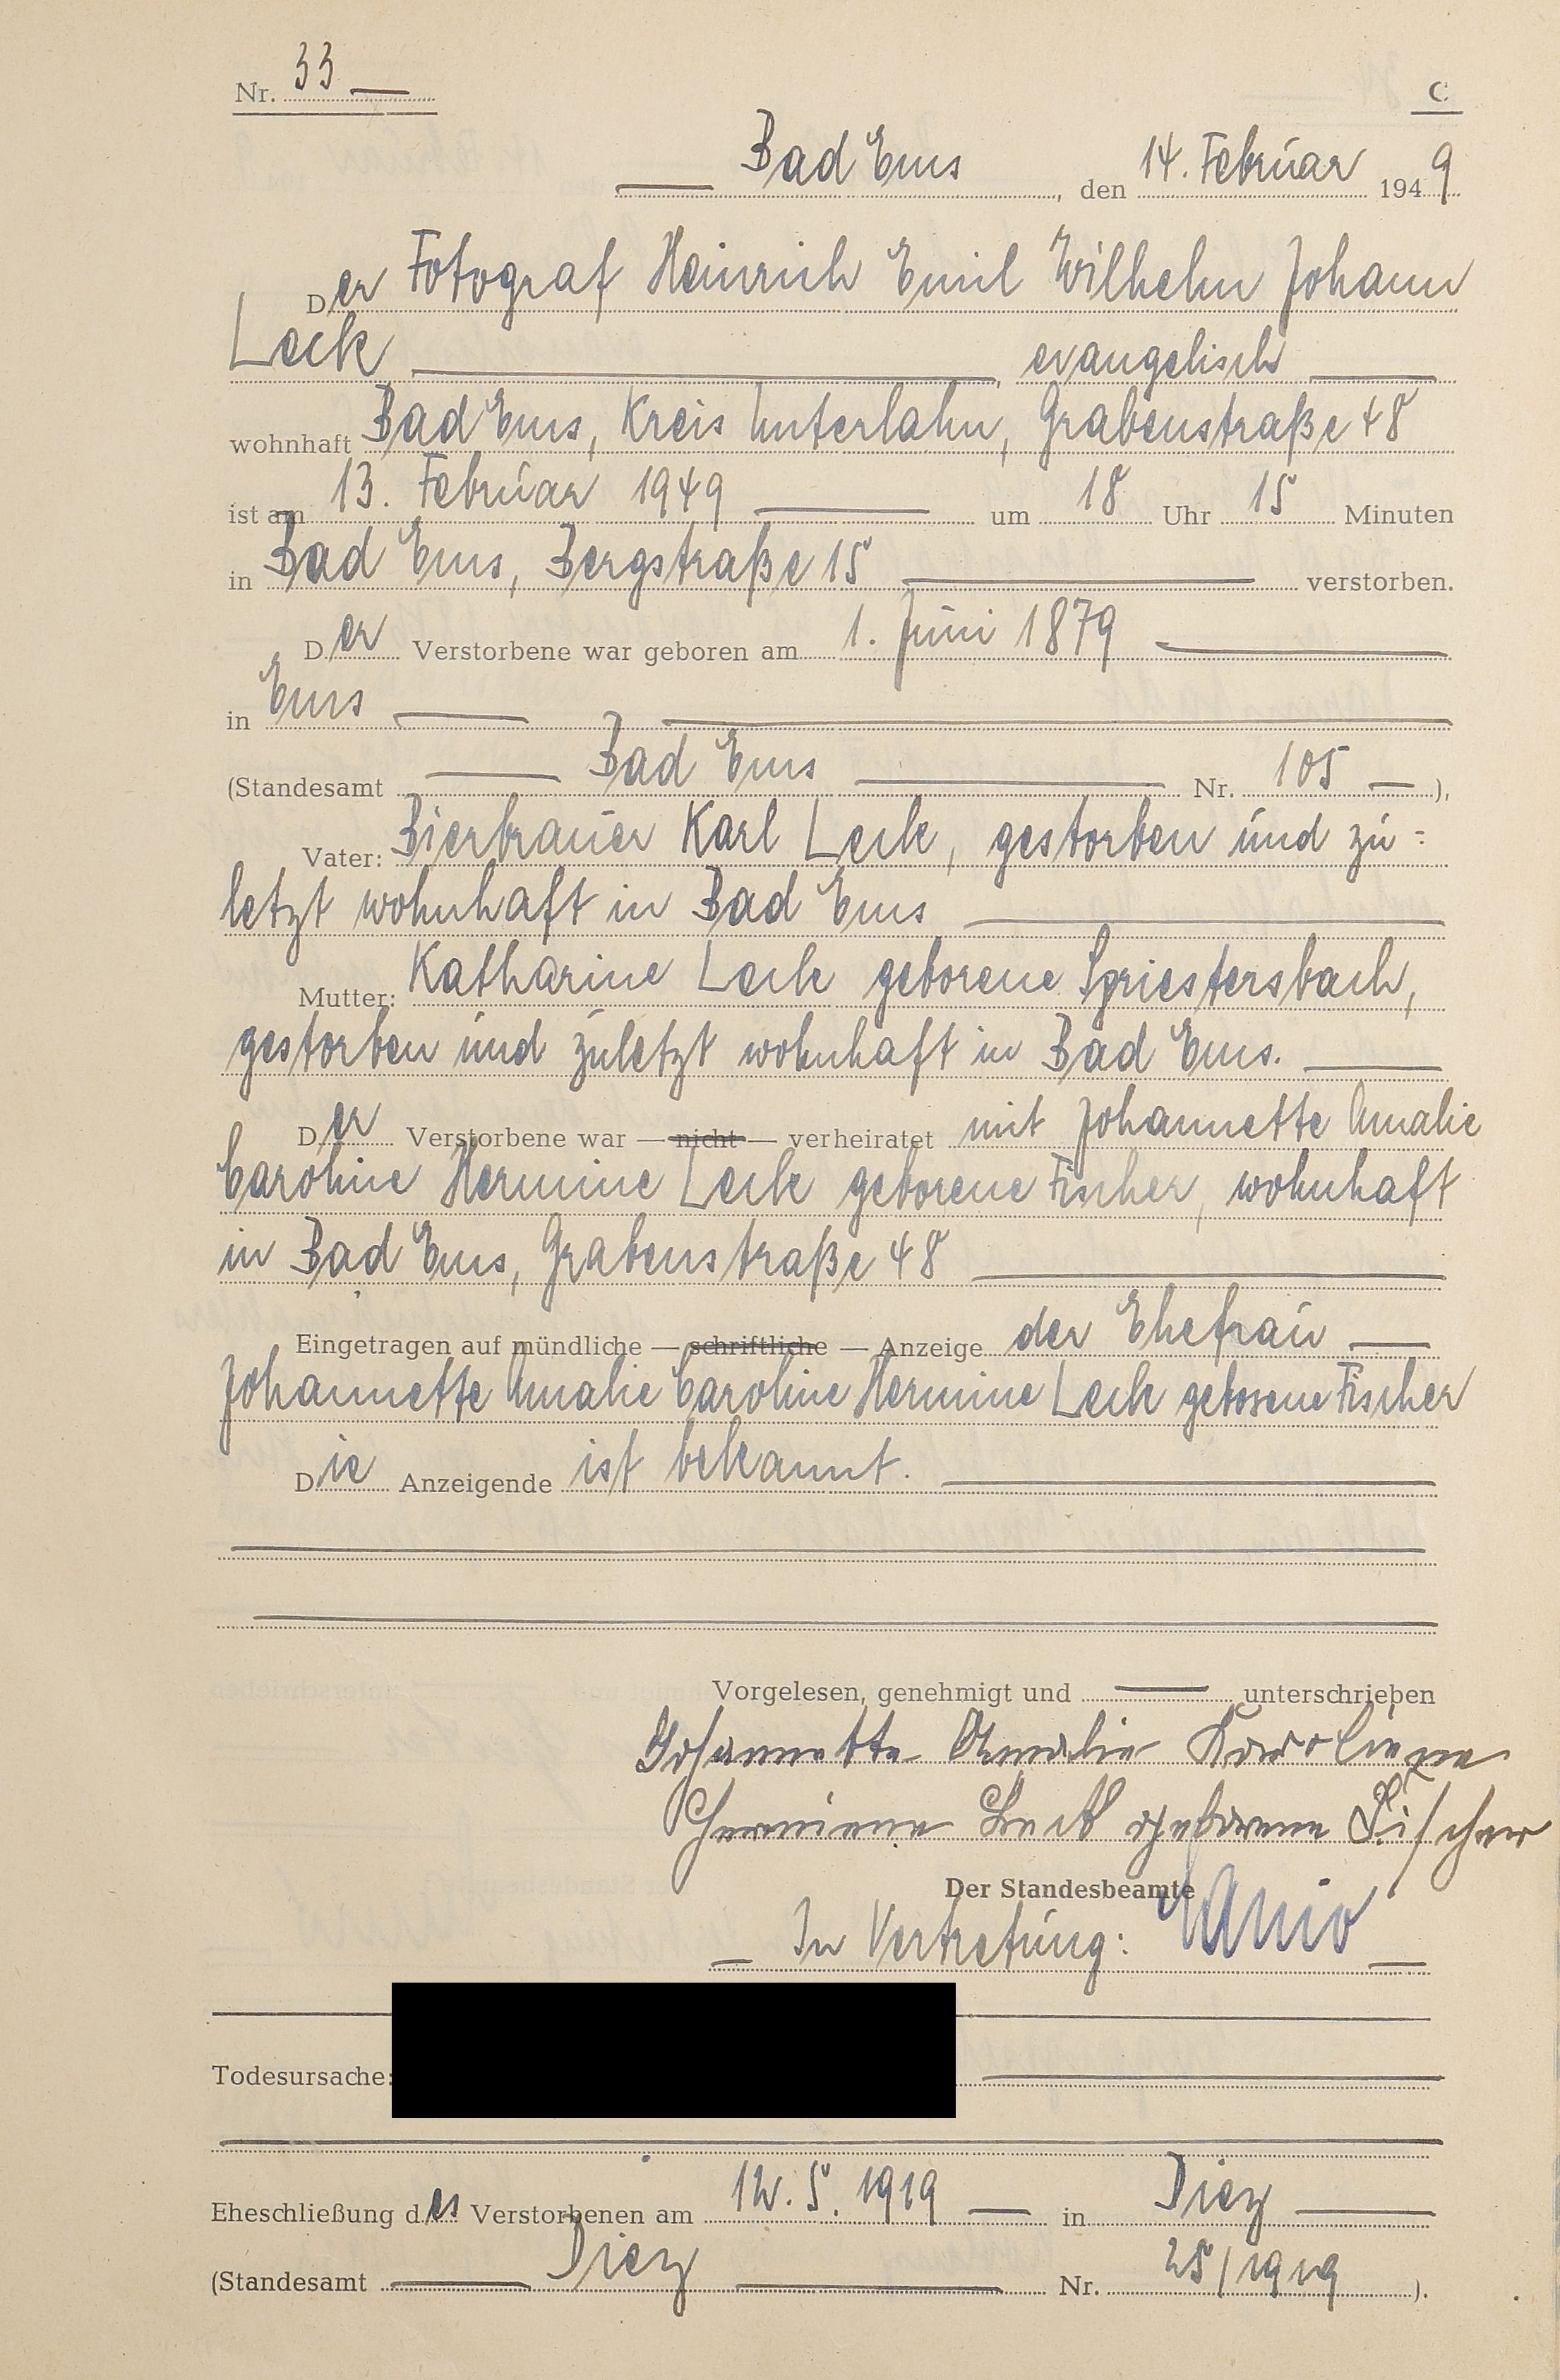 Nr. 33
C
Bad Ems, den 14. Februar 1949
Der Fotograf Heinrich Emil Wilhelm Johann
Leck, evangelisch
wohnhaft Bad Ems, Kreis Unterlahn, Grabenstraße 48
ist am 13. Februar 1949 um 18 Uhr 15 Minuten
in Bad Ems, Bergstraße 15 verstorben.
Der Verstorbene war geboren am 1. Juni 1879
in Ems
(Standesamt Bad Ems Nr. 105),
Vater: Bierbrauer Karl Leck, gestorben und zu=
letzt wohnhaft in Bad Ems
Mutter: Katharine Leck geborene Spriestersbach,
gestorben und zuletzt wohnhaft in Bad Ems.
Der Verstorbene war — nicht — verheiratet mit Johannette Amalie
Caroline Hermine Leck geborene Fischer, wohnhaft
in Bad Ems, Grabenstraße 48
Eingetragen auf mündliche — schriftliche — Anzeige der Ehefrau
Johannette Amalie Caroline Hermine Leck geborene Fischer
Die Anzeigende ist bekannt.
Vorgelesen, genehmigt und unterschrieben
Johannette Amalie Karoliene
Hermiene Leck geborene Fischer
Der Standesbeamte
In Vertretung:
Todesursache:
Eheschließung des Verstorbenen am 12. 5. 1919 in Diez
(Standesamt Diez Nr. 25/1919).